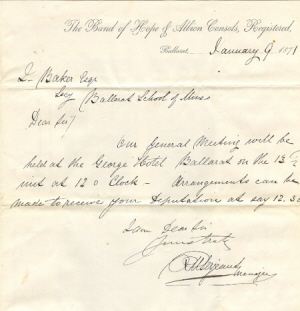 The Band of Hope & Albion Consols, Registered,
Ballarat, January 9 1871
Baker Esqr
Secy (Ballarat School of Mines
Dear Sir)
Our general Meeting will be
held at the George Hotel Ballarat on the 13th
inst at 12 o Clock - Arrangements can be
made to receive your Deputation at say 12.30
I am Dear Sir
Yours truly
Manager